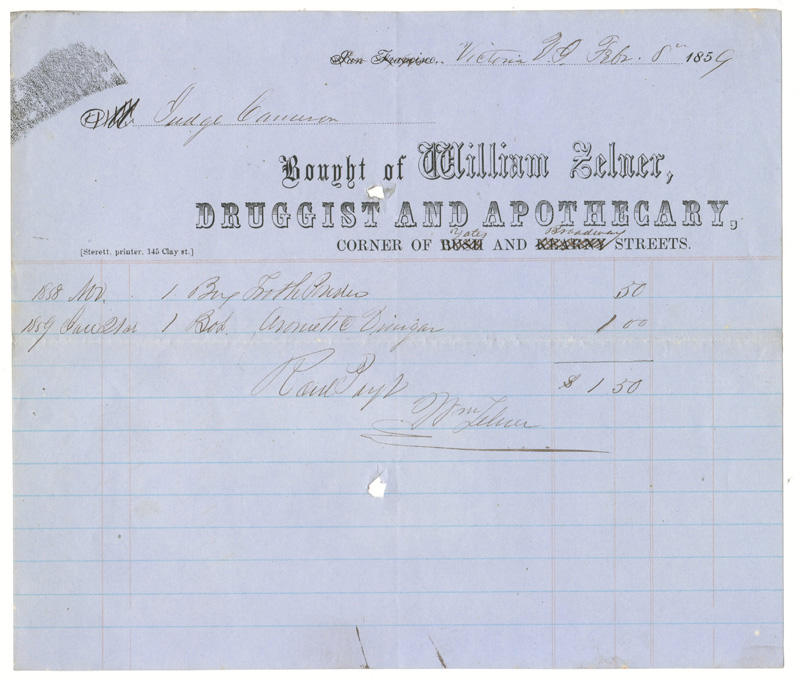 San Francisco, Victoria V.I. Febr. 8th 1859
Judge Cameron
Bought of William Zelner,
DRUGGIST AND APOTHECARY,
Yates Broadway
CORNER OF BUSH AND KEARNY STREETS.
[Sterett, printer, 145 Clay st.]
1858 Nov. 1 Box Tooth Powder 50
1859 Jan 1 Bot. Aromatic Vinigar 1 00
Recd Payt $ 1 50
Wm Zelner